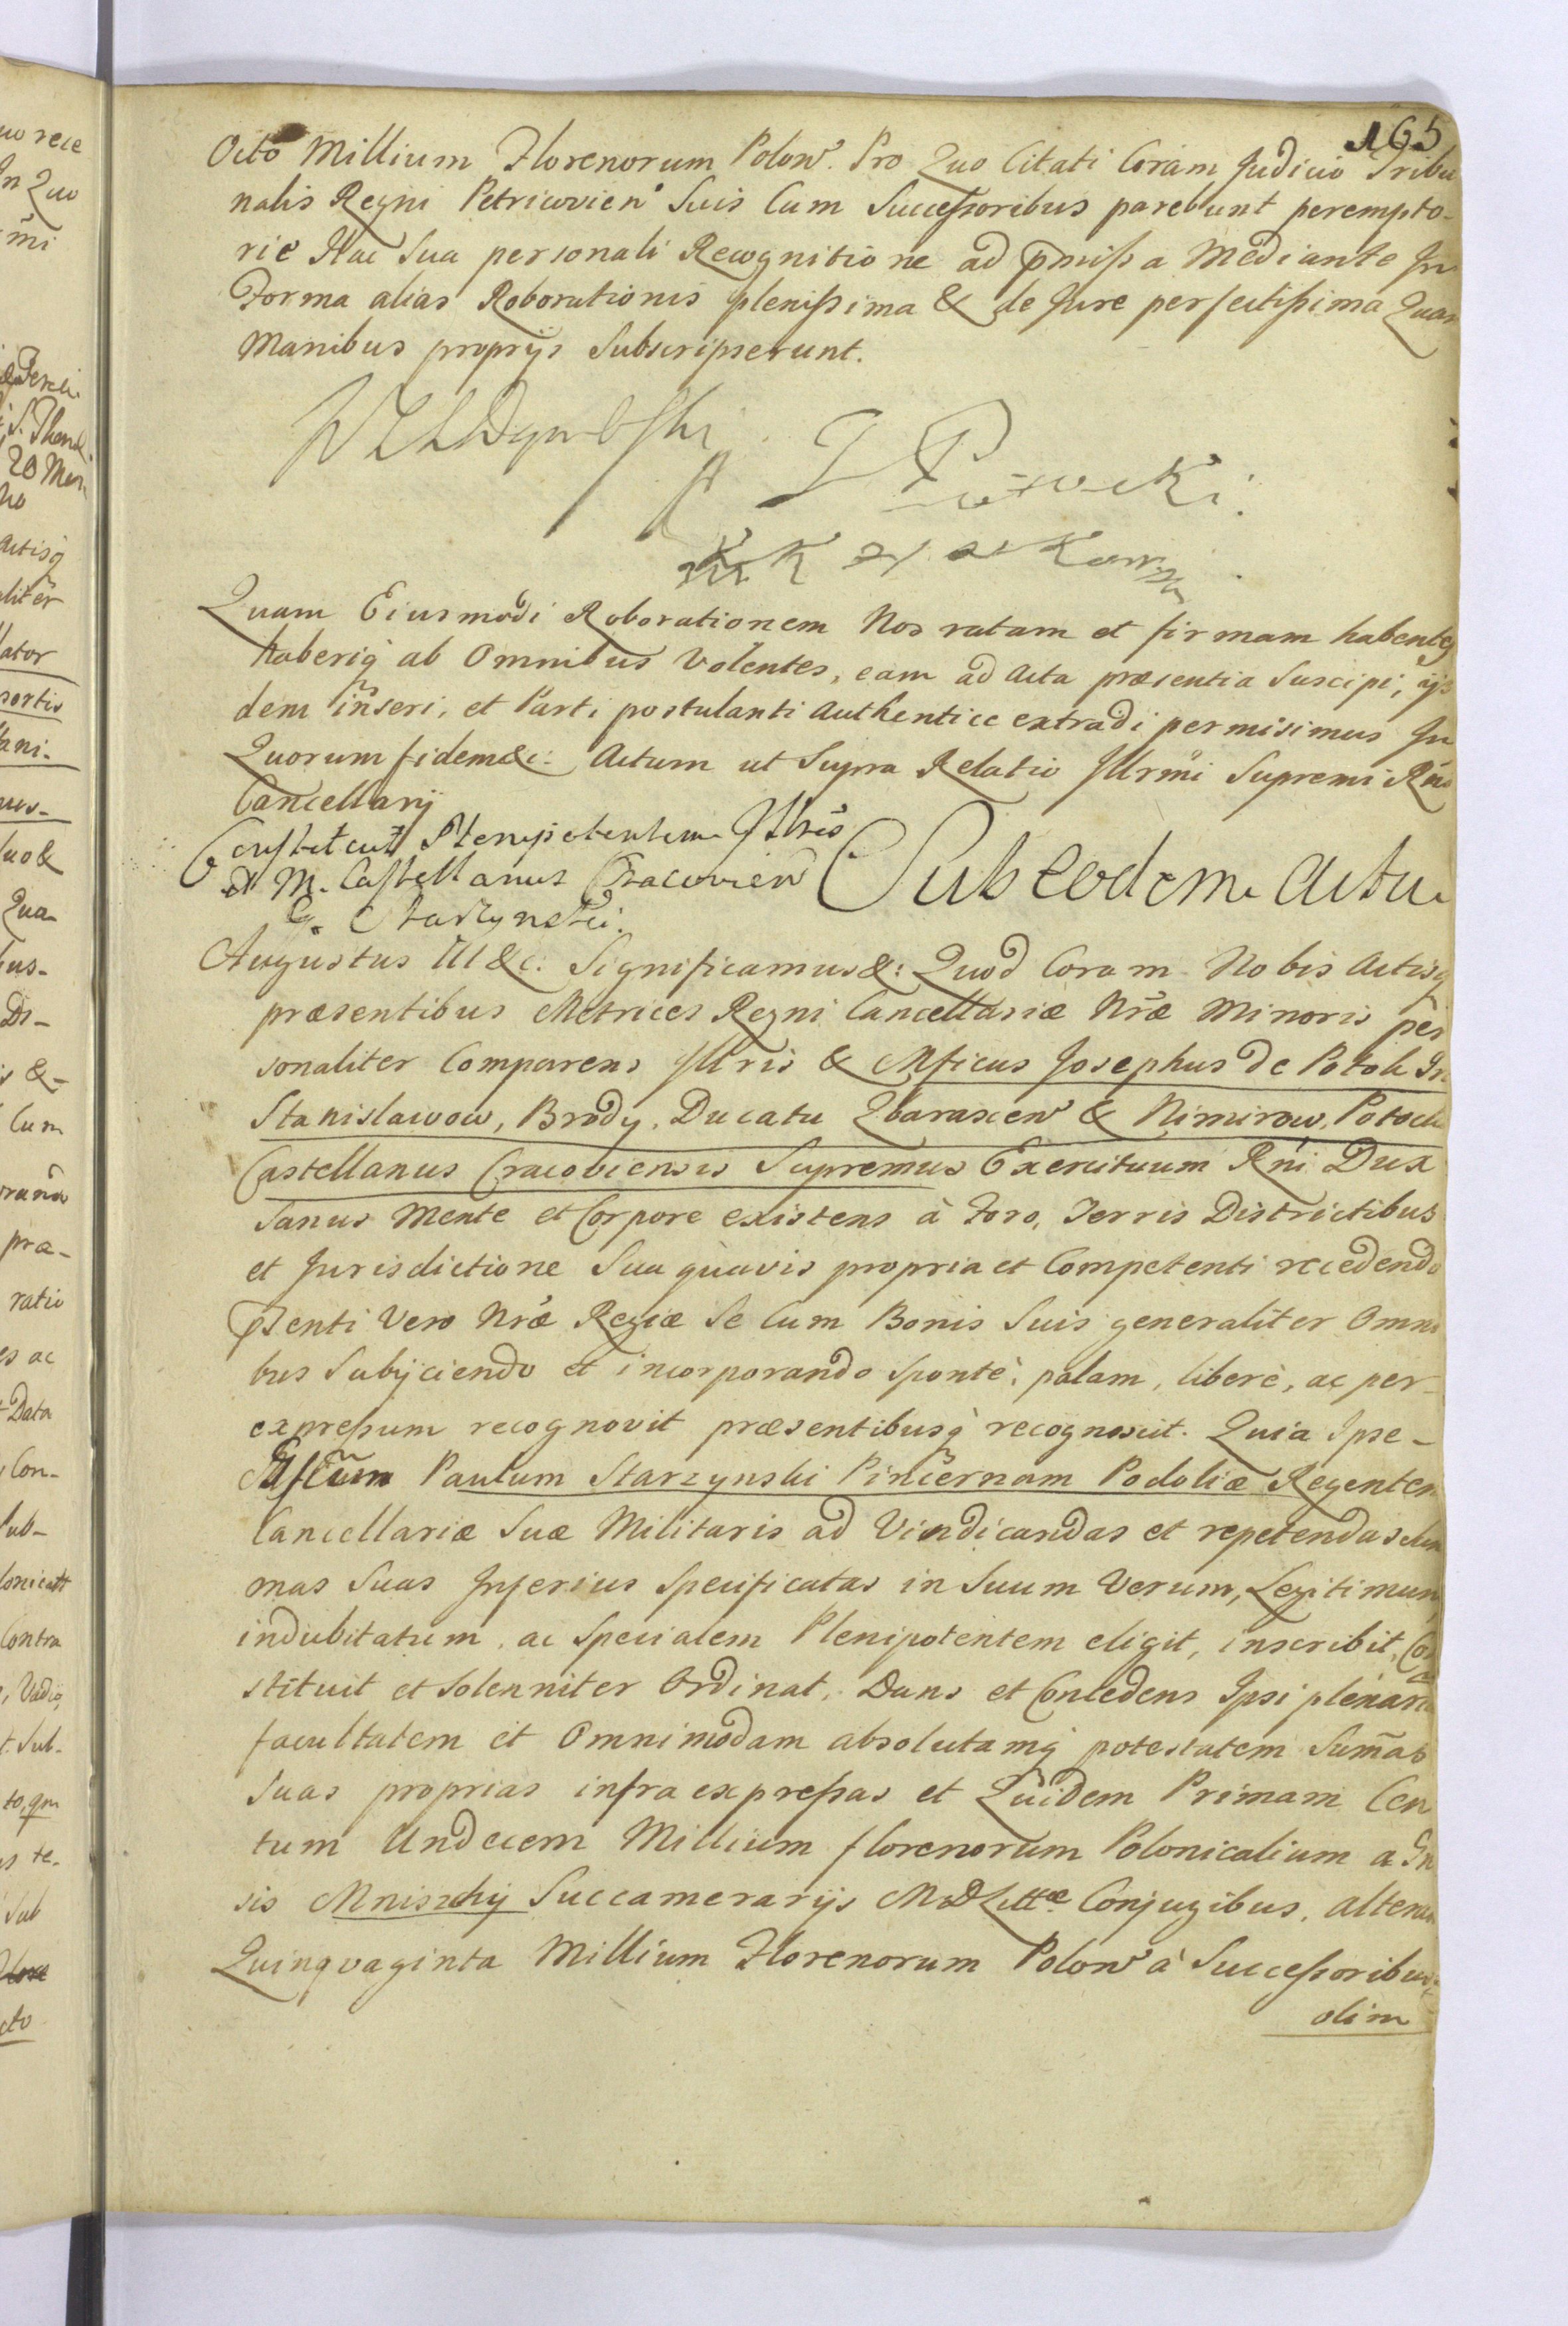 165
Octo Millium Florenorum Polon. Pro Quo Citati Coram Judicio Tribu
nalis Regni Petricovien Suis Cum Successoribus parebunt perempto-
rie Hac Sua personali Recognitione ad pmissa Mediante In
Forma alias Roborationis plenissima & de Jure perfectissima Quam
Manibus proprijs Subscripserunt.
Potocki
Quam Eiusmodi Roborationem Nos ratam et firmam habentes
haberiq ab Omnibus Volentes, eam ad Acta præsentia Suscipi, ijs
dem inseri, et Parti postulanti Authentice extradi permisimus In
Quorum fidem &c: Actum ut Supra Relatio Illrmi Supremi Rni
Cancellarij
Constituit Plenipotentem Illris
& M. Castellanus Cracovien
G. Starzynski.
Sub eodem Actu
Augustus III &c: Significamus &: Quod Coram Nobis Actisq
præsentibus Metrices Regni Cancellariæ Nræ Minoris per
sonaliter Comparens Illris & Mficus Josephus de Potok In
Stanislawow, Brody, Ducatu Zbarascen & Nimirow, Potocki
Castellanus Cracoviensis Supremus Exercituum Rni Dux
Sanus Mente et Corpore existens à Foro, Terris Districtibus
et Jurisdictione Sua quavis propria et Competenti recedendo
psenti Vero Nræ Regiæ Se Cum Bonis Suis generaliter Omni
bus Subijciendo et incorporando Sponte, palam, liberè, ac per-
expressum recognovit præsentibusq recognoscit. Quia Ipse-
Paulum Starzynski Pincernam Podoliæ Regentem
Cancellariæ Suæ Militaris ad Vindicandas et repetendas Sum
mas Suas Inferius Specificatas in Suum Verum, Legitimum,
indubitatum, ac Specialem Plenipotentem eligit, inscribit, Con
stituit et Solenniter Ordinat, Dans et Concedens Ipsi plenariam
facultatem et Omnimodam absolutamq potestatem Sumas
Suas proprias infra expressas et Quidem Primam Cen
tum Undecem Millium florenorum Polonicalium a Gn
sis Mniszchij Succamerarijs MDLittæ Conjugibus, alteram
Quinqvaginta Millium Florenorum Polon à Successoribus
olim